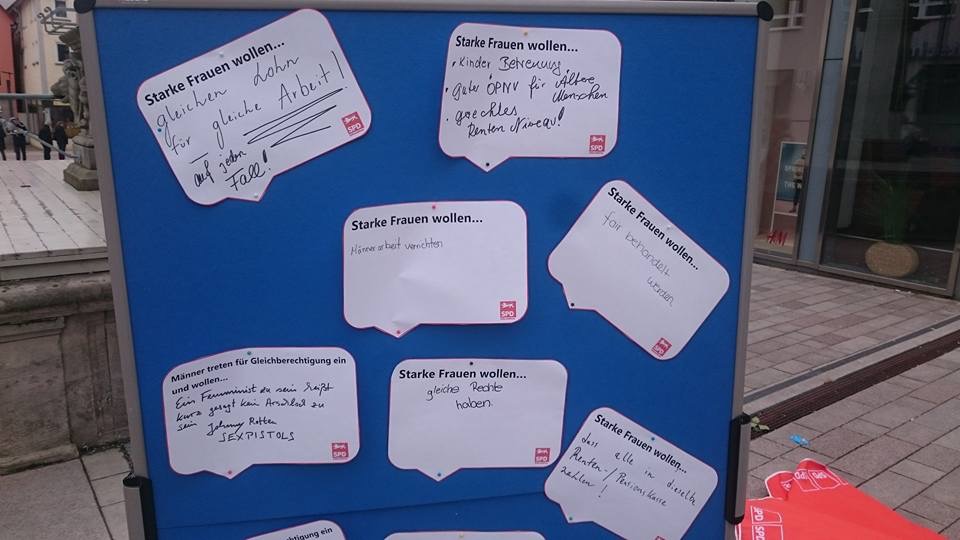 Starke Frauen wollen...
gleichen Lohn
für gleiche Arbeit!
auf jeden
Fall!
SPD
Starke Frauen wollen...
• Kinder Betreuung
• guter ÖPNV für Ältere
Menschen
• grechtes
Renten Niveau!
SPD
Starke Frauen wollen...
Männerarbeit verrichten
SPD
Starke Frauen wollen...
fair behandelt
werden
SPD
Männer treten für Gleichberechtigung ein
und wollen...
Ein Femminist zu sein heißt
kurz gesagt kein Arschloch zu
sein Johnny Rotten
SEXPISTOLS
SPD
Starke Frauen wollen...
gleiche Rechte
haben.
SPD
Starke Frauen wollen...
dass alle in dieselbe
Renten-/Pensionskasse
zahlen!
SPD
chtigung ein
H&M
SPD
SPD